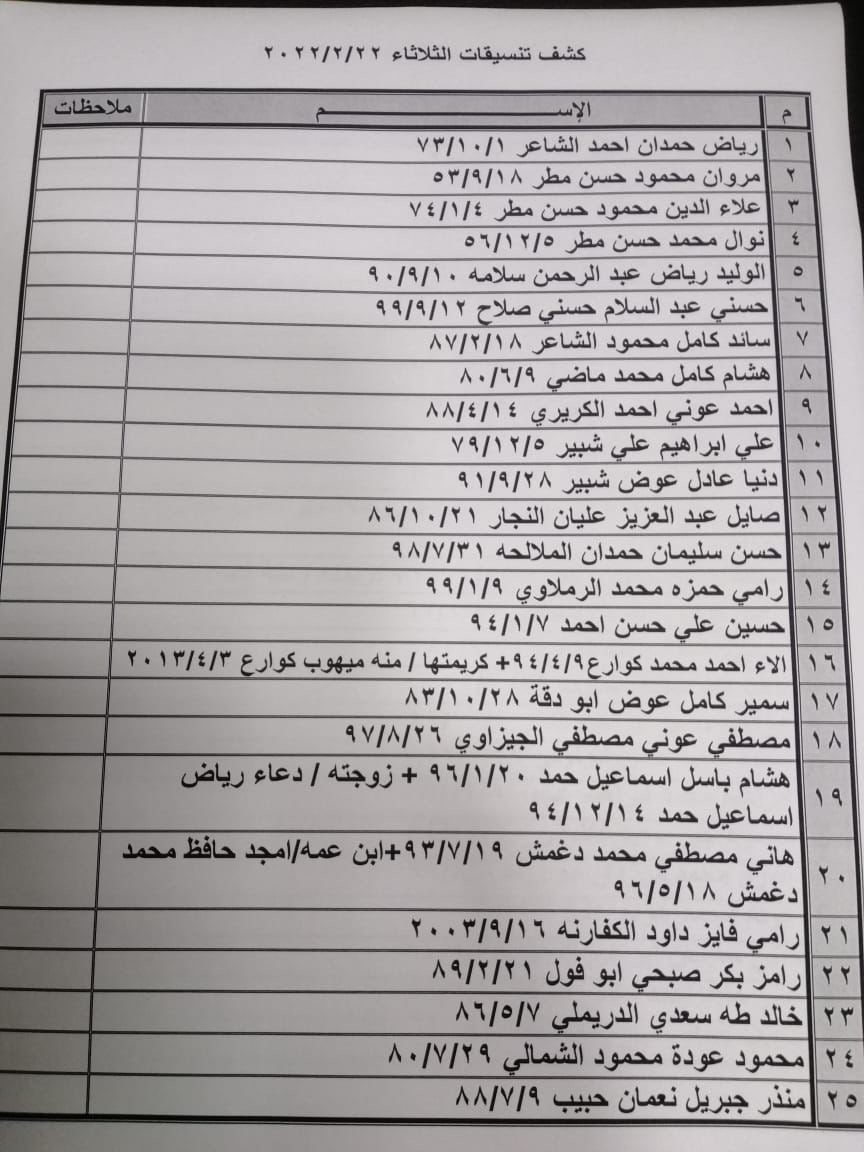 كشف تنسيقات الثلاثاء ٢٠٢٢/٢/٢٢
م الإســـــــــــــــــم ملاحظات
١ رياض حمدان احمد الشاعر ٧٣/١٠/١
٢ مروان محمود حسن مطر ٥٣/٩/١٨
٣ علاء الدين محمود حسن مطر ٧٤/١/٤
٤ نوال محمد حسن مطر ٥٦/١٢/٥
٥ الوليد رياض عبد الرحمن سلامه ٩٠/٩/١٠
٦ حسني عبد السلام حسني صلاح ٩٩/٩/١٢
٧ سائد كامل محمود الشاعر ٨٧/٢/١٨
٨ هشام كامل محمد ماضي ٨٠/٦/٩
٩ احمد عوني احمد الكريري ٨٨/٤/١٤
١٠ علي ابراهيم علي شبير ٧٩/١٢/٥
١١ دنيا عادل عوض شبير ٩١/٩/٢٨
١٢ صايل عبد العزيز عليان النجار ٨٦/١٠/٢١
١٣ حسن سليمان حمدان الملالحه ٩٨/٧/٣١
١٤ رامي حمزه محمد الرملاوي ٩٩/١/٩
١٥ حسين علي حسن احمد ٩٤/١/٧
١٦ الاء احمد محمد كوارع٩٤/٤/٩+ كريمتها / منه ميهوب كوارع ٢٠١٣/٤/٣
١٧ سمير كامل عوض ابو دقة ٨٣/١٠/٢٨
١٨ مصطفي عوني مصطفي الجيزاوي ٩٧/٨/٢٦
١٩ هشام باسل اسماعيل حمد ٩٦/١/٢٠ + زوجته / دعاء رياض
اسماعيل حمد ٩٤/١٢/١٤
٢٠ هاني مصطفي محمد دغمش ٩٣/٧/١٩+ابن عمه/امجد حافظ محمد
دغمش ٩٦/٥/١٨
٢١ رامي فايز داود الكفارنه ٢٠٠٣/٩/١٦
٢٢ رامز بكر صبحي ابو فول ٨٩/٢/٢١
٢٣ خالد طه سعدي الدريملي ٨٦/٥/٧
٢٤ محمود عودة محمود الشمالي ٨٠/٧/٢٩
٢٥ منذر جبريل نعمان حبيب ٨٨/٧/٩